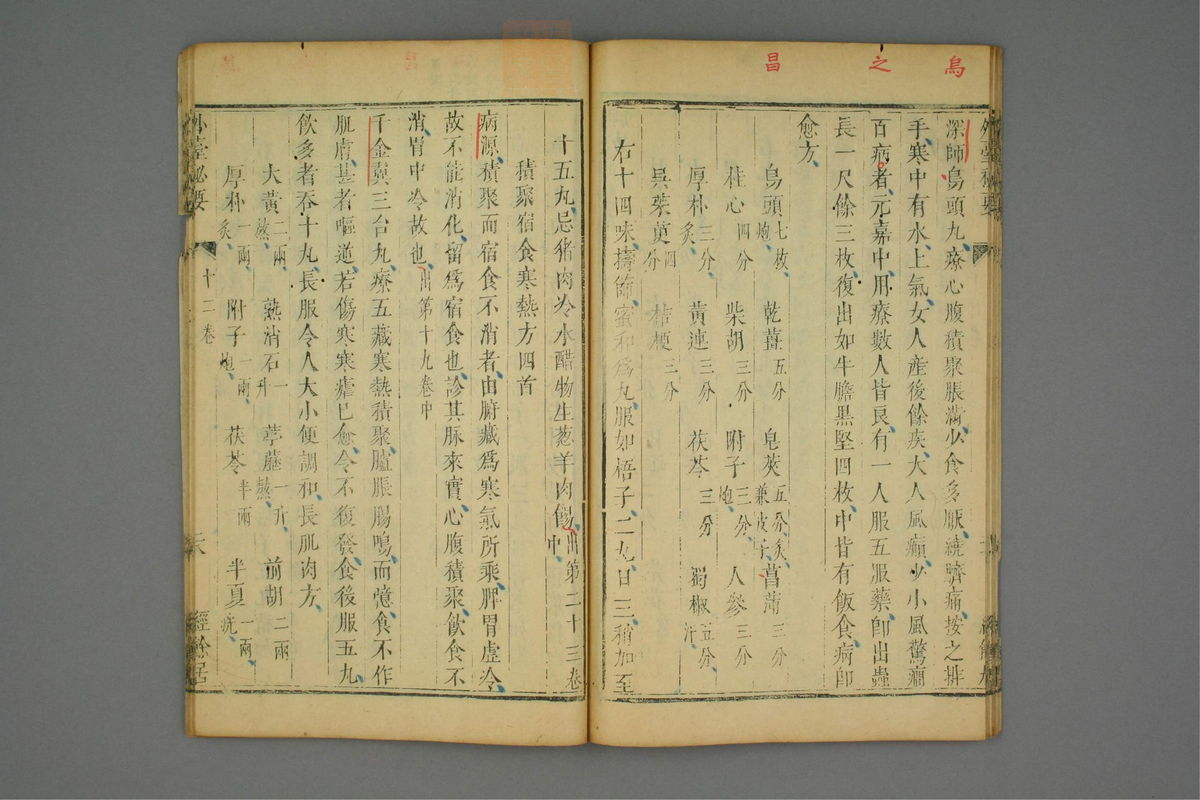 烏之昌
深師烏頭丸療心腹積聚脹滿少食多厭繞臍痛按之排
手寒中有水上氣女人產後餘疾大人風癲少小風驚癇
百病者元嘉中用療數人皆良有一人服五服藥卽出蟲
長一尺餘三枚復出如牛膽黑堅四枚中皆有飯食病卽
愈方
烏頭七枚炮 乾薑五分 皂莢五分炙兼皮子 菖蒲三分
桂心四分 柴胡三分 附子三分炮 人參三分
厚朴三分炙 黃連三分 茯苓三分 蜀椒五分汗
吳茱萸四分 桔梗三分
右十四味擣篩蜜和爲丸服如梧子二丸日三稍加至
十五丸忌猪肉冷水醋物生葱羊肉餳出第二十三卷中
積聚宿食寒熱方四首
病源積聚而宿食不消者由腑藏爲寒氣所乘脾胃虛冷
故不能消化留爲宿食也診其脉來實心腹積聚飲食不
消胃中冷故也出第十九卷中
千金翼三台丸療五藏寒熱積聚臚脹腸鳴而憶食不作
肌膚甚者嘔逆若傷寒寒瘧已愈令不復發食後服五丸
飲多者吞十丸長服令人大小便調和長肌肉方
大黃二兩熬 熟消石一升 葶藶一升熬 前胡二兩
厚朴一兩炙 附子一兩炮 茯苓半兩 半夏一兩洗
外臺祕要 十二卷 經餘居